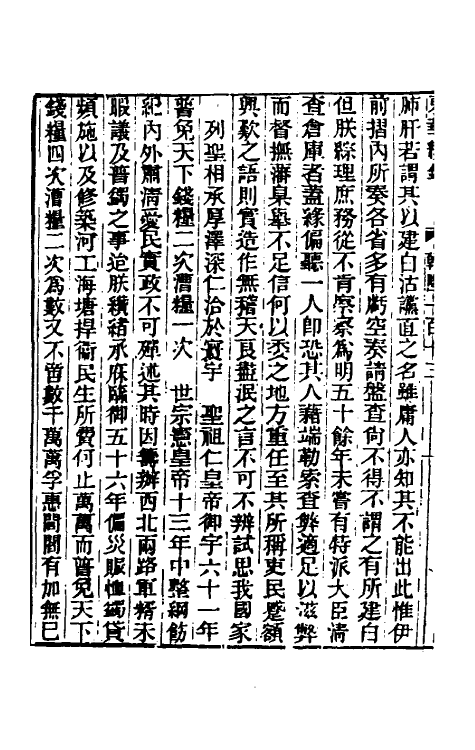 東華續錄 乾隆一百十三
肺肝若謂其以建白沽讜直之名雖庸人亦知其不能出此惟伊
前摺內所奏各省多有虧空奏請盤查尙不得不謂之有所建白
但朕綜理庶務從不肯察察爲明五十餘年未嘗有特派大臣淸
查倉庫者蓋緣偏聽一人卽恐其人藉端勒索查弊適足以滋弊
而督撫藩臬舉不足信何以委之地方重任至其所稱吏民蹙額
興歎之語則實造作無稽天良盡泯之言不可不辨試思我國家
列聖相承厚澤深仁洽於寰宇 聖祖仁皇帝御宇六十一年
普免天下錢糧二次漕糧一次 世宗憲皇帝十三年中整綱飭
紀內外肅淸愛民實政不可殫述其時因籌辦西北兩路軍糈未
暇議及普蠲之事迨朕纘緒承庥臨御五十六年偏災賑恤蠲貸
頻施以及修築河工海塘捍衞民生所費何止萬萬而普免天下
錢糧四次漕糧二次爲數又不啻數千萬萬孚惠閭閻有加無已